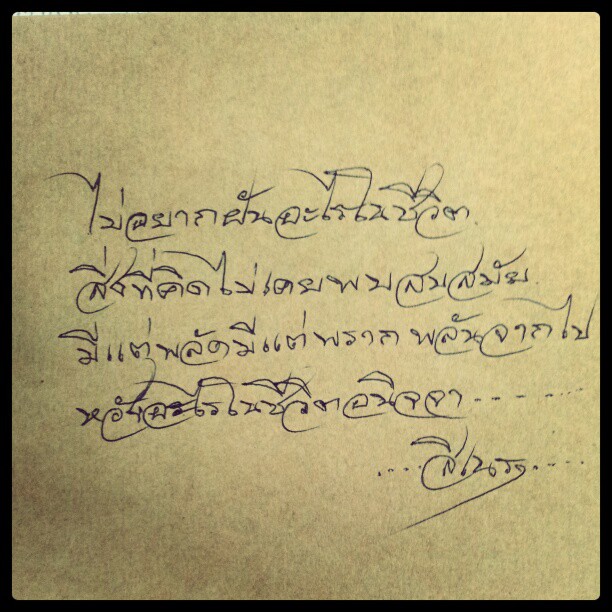 ไม่อยากฝันอะไรในชีวิต
สิ่งที่คิดไม่เคยพบสบสมัย
มีแต่พลัดมีแต่พราก พลันจากไป
หวังอะไรในชีวิตอนิจจา......
....สีเนรา.....